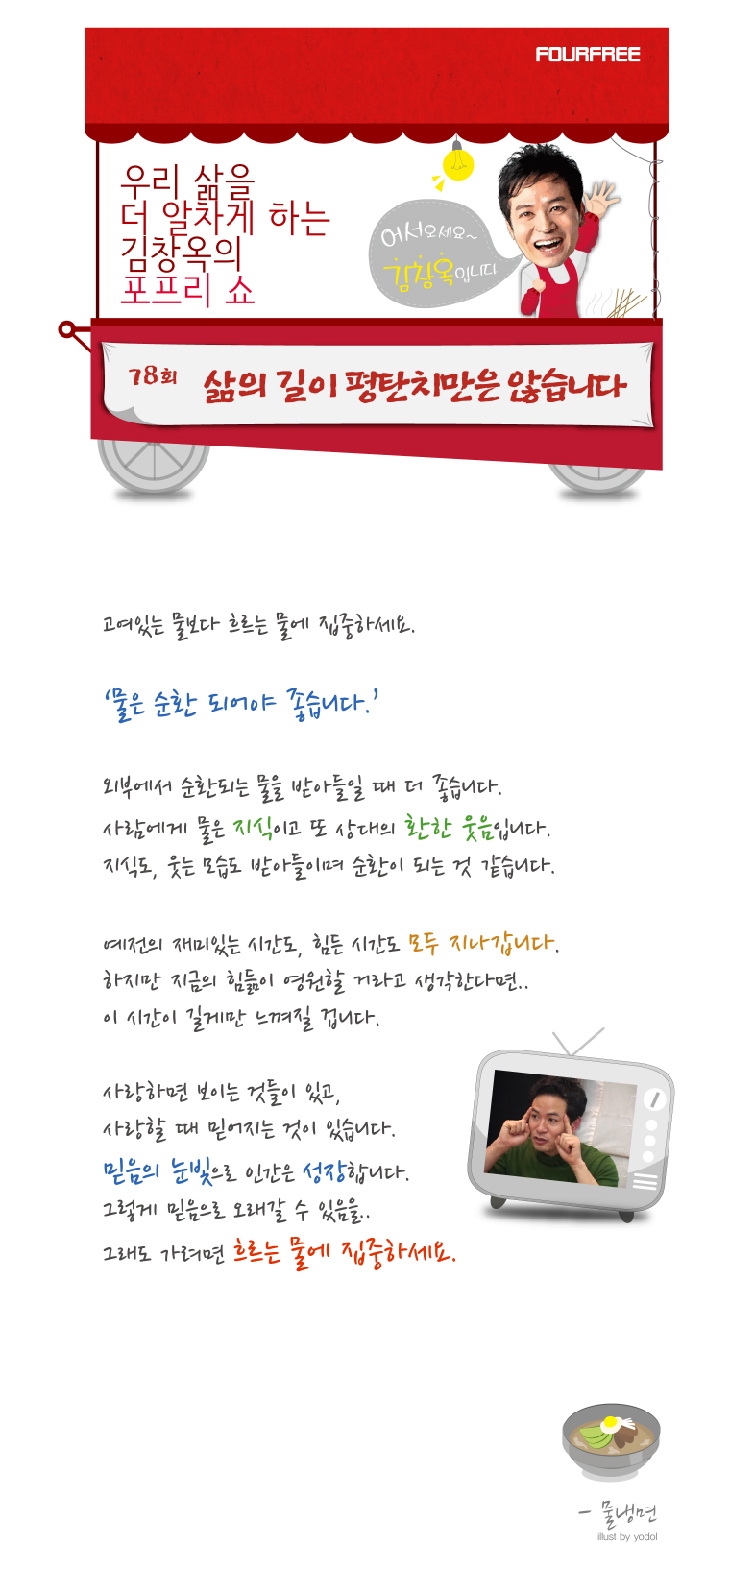 FOURFREE
우리 삶을
더 알차게 하는
김창옥의
포프리 쇼
어서오세요~
김창옥입니다
78회 삶의 길이 평탄치만은 않습니다
고여있는 물보다 흐르는 물에 집중하세요.
‘물은 순환 되어야 좋습니다.’
외부에서 순환되는 물을 받아들일 때 더 좋습니다.
사람에게 물은 지식이고 또 상대의 환한 웃음입니다.
지식도, 웃는 모습도 받아들이며 순환이 되는 것 같습니다.
예전의 재미있는 시간도, 힘든 시간도 모두 지나갑니다.
하지만 지금의 힘듦이 영원할 거라고 생각한다면..
이 시간이 길게만 느껴질 겁니다.
사랑하면 보이는 것들이 있고,
사랑할 때 믿어지는 것이 있습니다.
믿음의 눈빛으로 인간은 성장합니다.
그렇게 믿음으로 오래갈 수 있음을..
그래도 가려면 흐르는 물에 집중하세요.
- 물냉면
illust by yodol